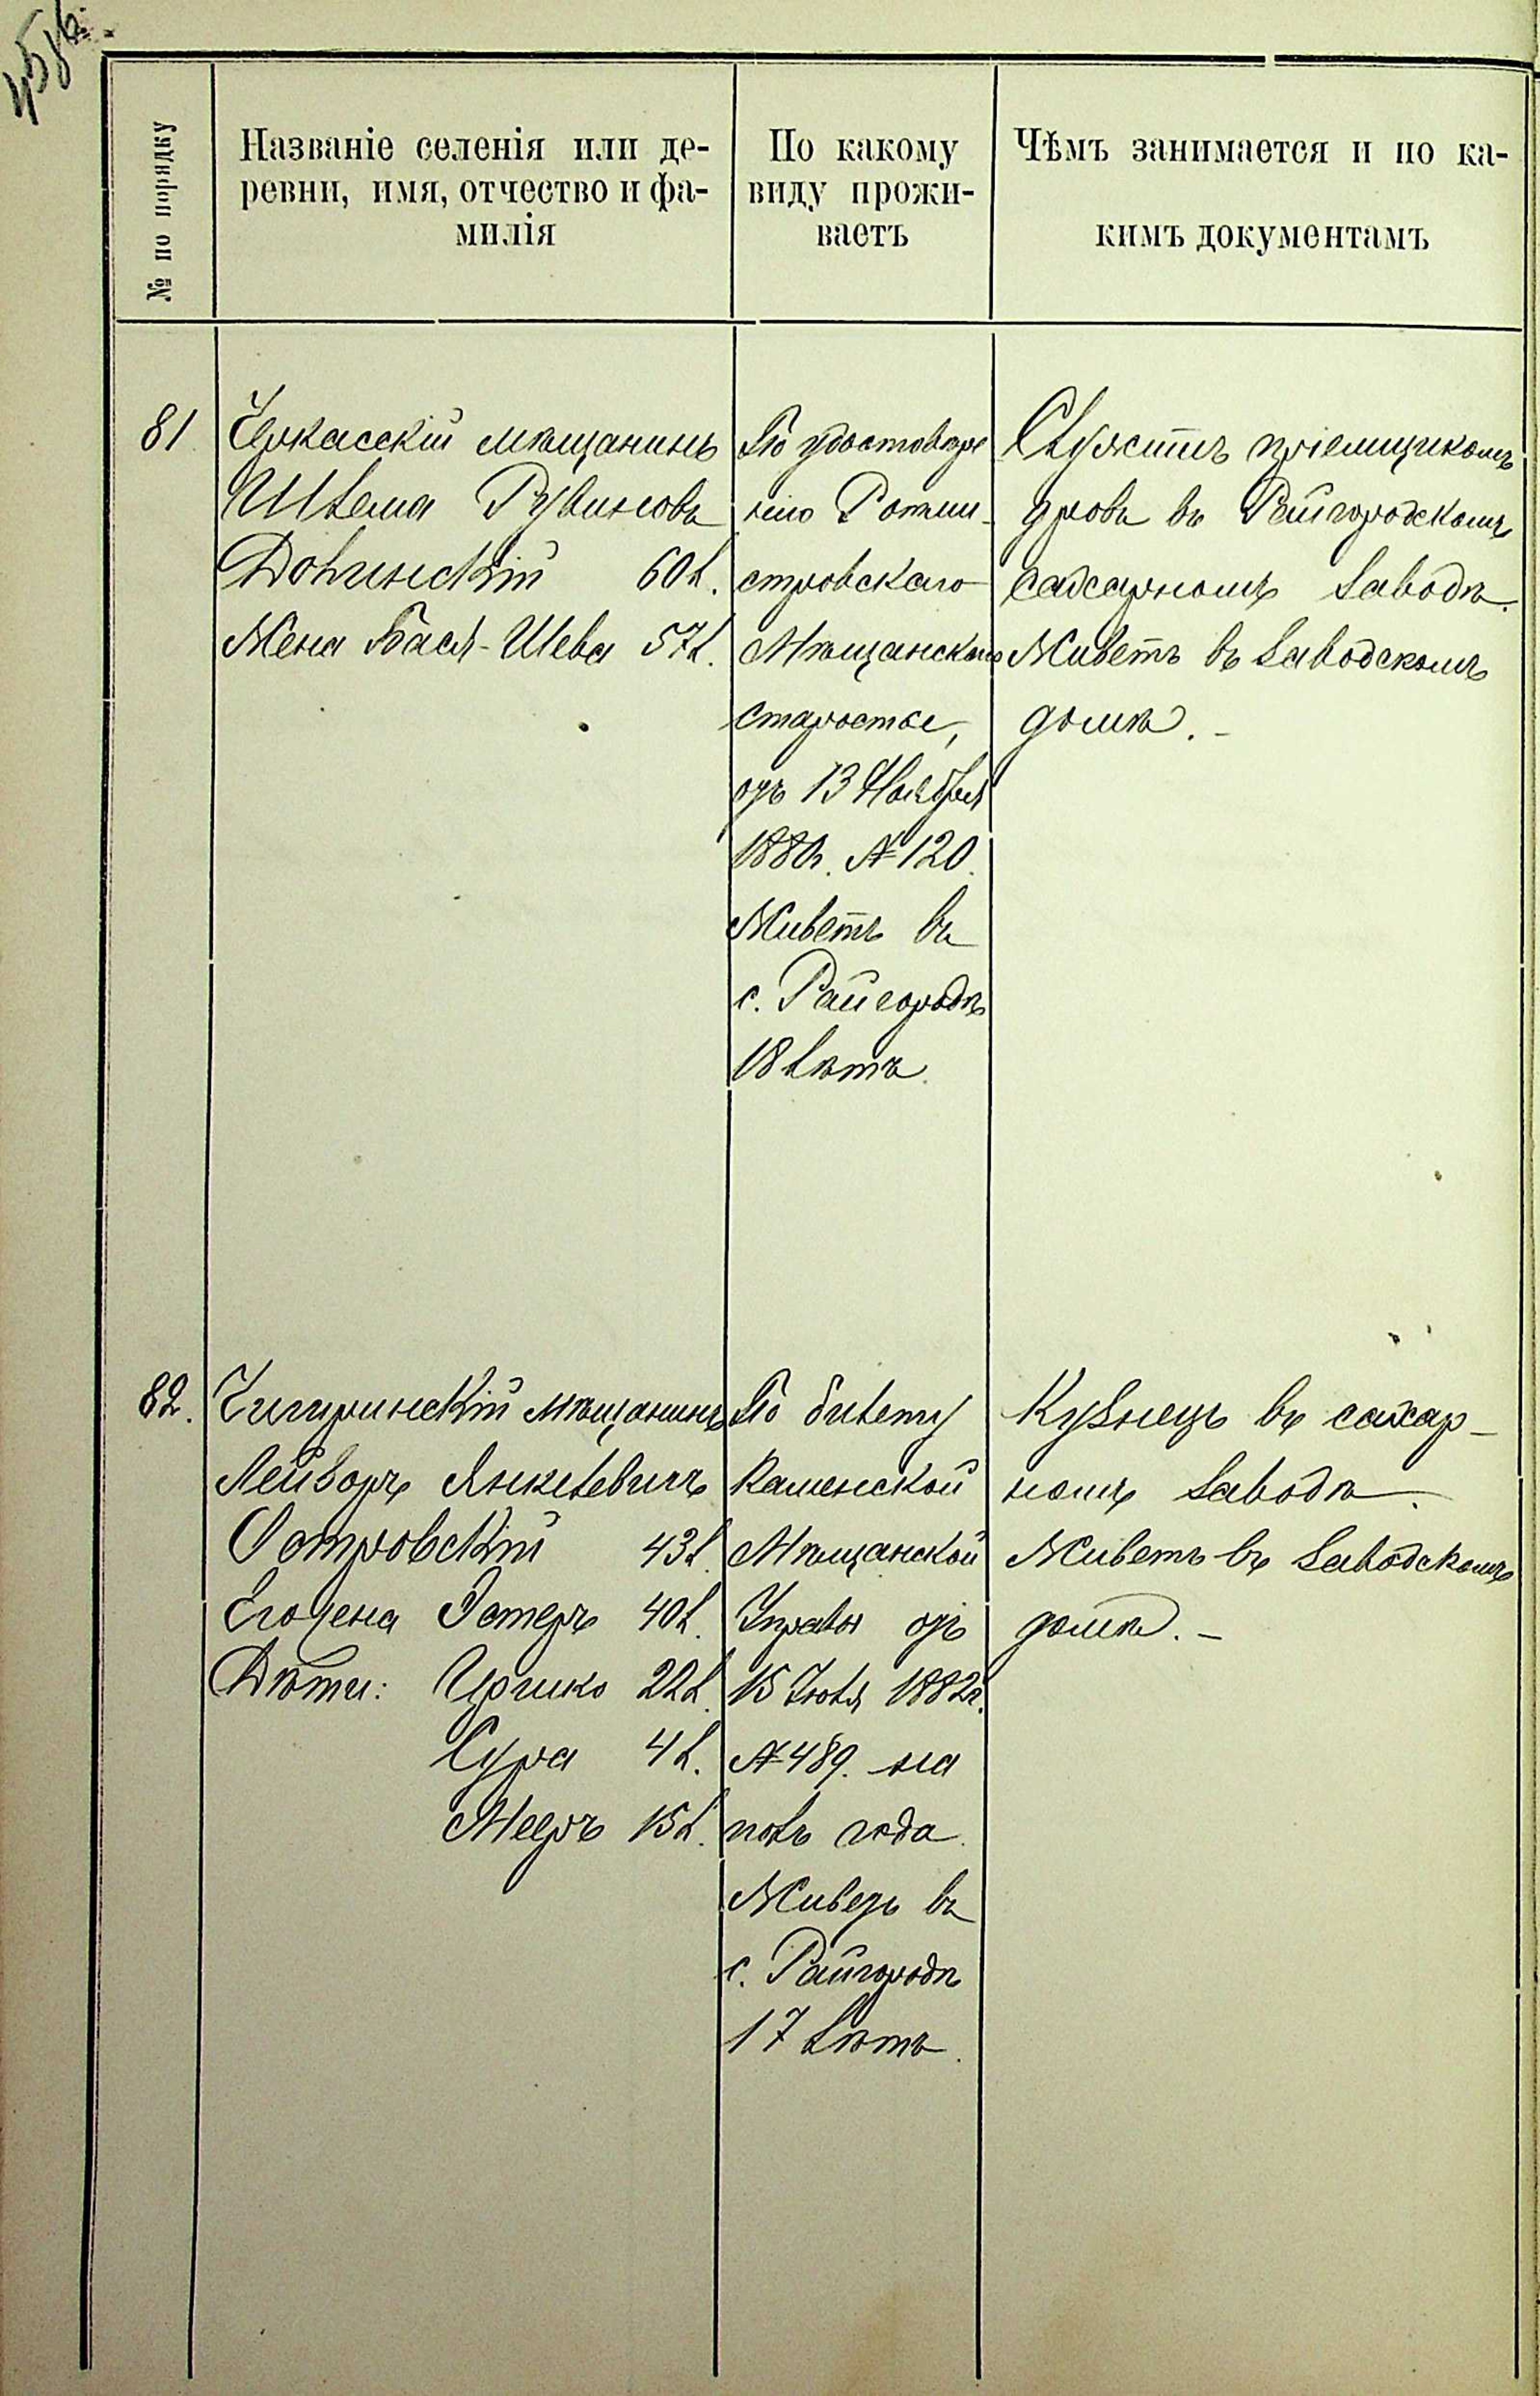 № по порядку
Названіе селенія или де-
ревни, имя, отчество и фа-
милія
По какому
виду прожи-
ваетъ
Чѣмъ занимается и по ка-
кимъ документамъ
81
Черкасскій мѣщанинъ
Шлема Рувиновъ
Долинскій 60 л.
Жена Бася-Шева 57 л.
По удостовѣре
нію Ротми-
стровскаго
Мѣщанскаго
старосты,
отъ 13 Ноября
№ 120.
Живетъ въ
с. Райгородѣ
18 лѣтъ.
Служитъ пріемщикомъ
дровъ въ Райгородскомъ
сахарномъ заводѣ.
Живетъ въ заводскомъ
домѣ. -
82.
Чигиринскій мѣщанинъ
Лейзоръ Янкелевичъ
Островскій 43 л.
Его жена Эстеръ 40 л.
Дѣти: 22 л.
Сура 4 л.
Мееръ 15 л.
По билету
Каменской
Мѣщанской
Управы отъ
15 Іюля 1882 г.
№ 489. на
полъ года.
Живетъ въ
с. Райгородѣ
17 лѣтъ.
Кузнецъ въ сахар-
номъ заводѣ.
Живетъ въ заводскомъ
домѣ. -